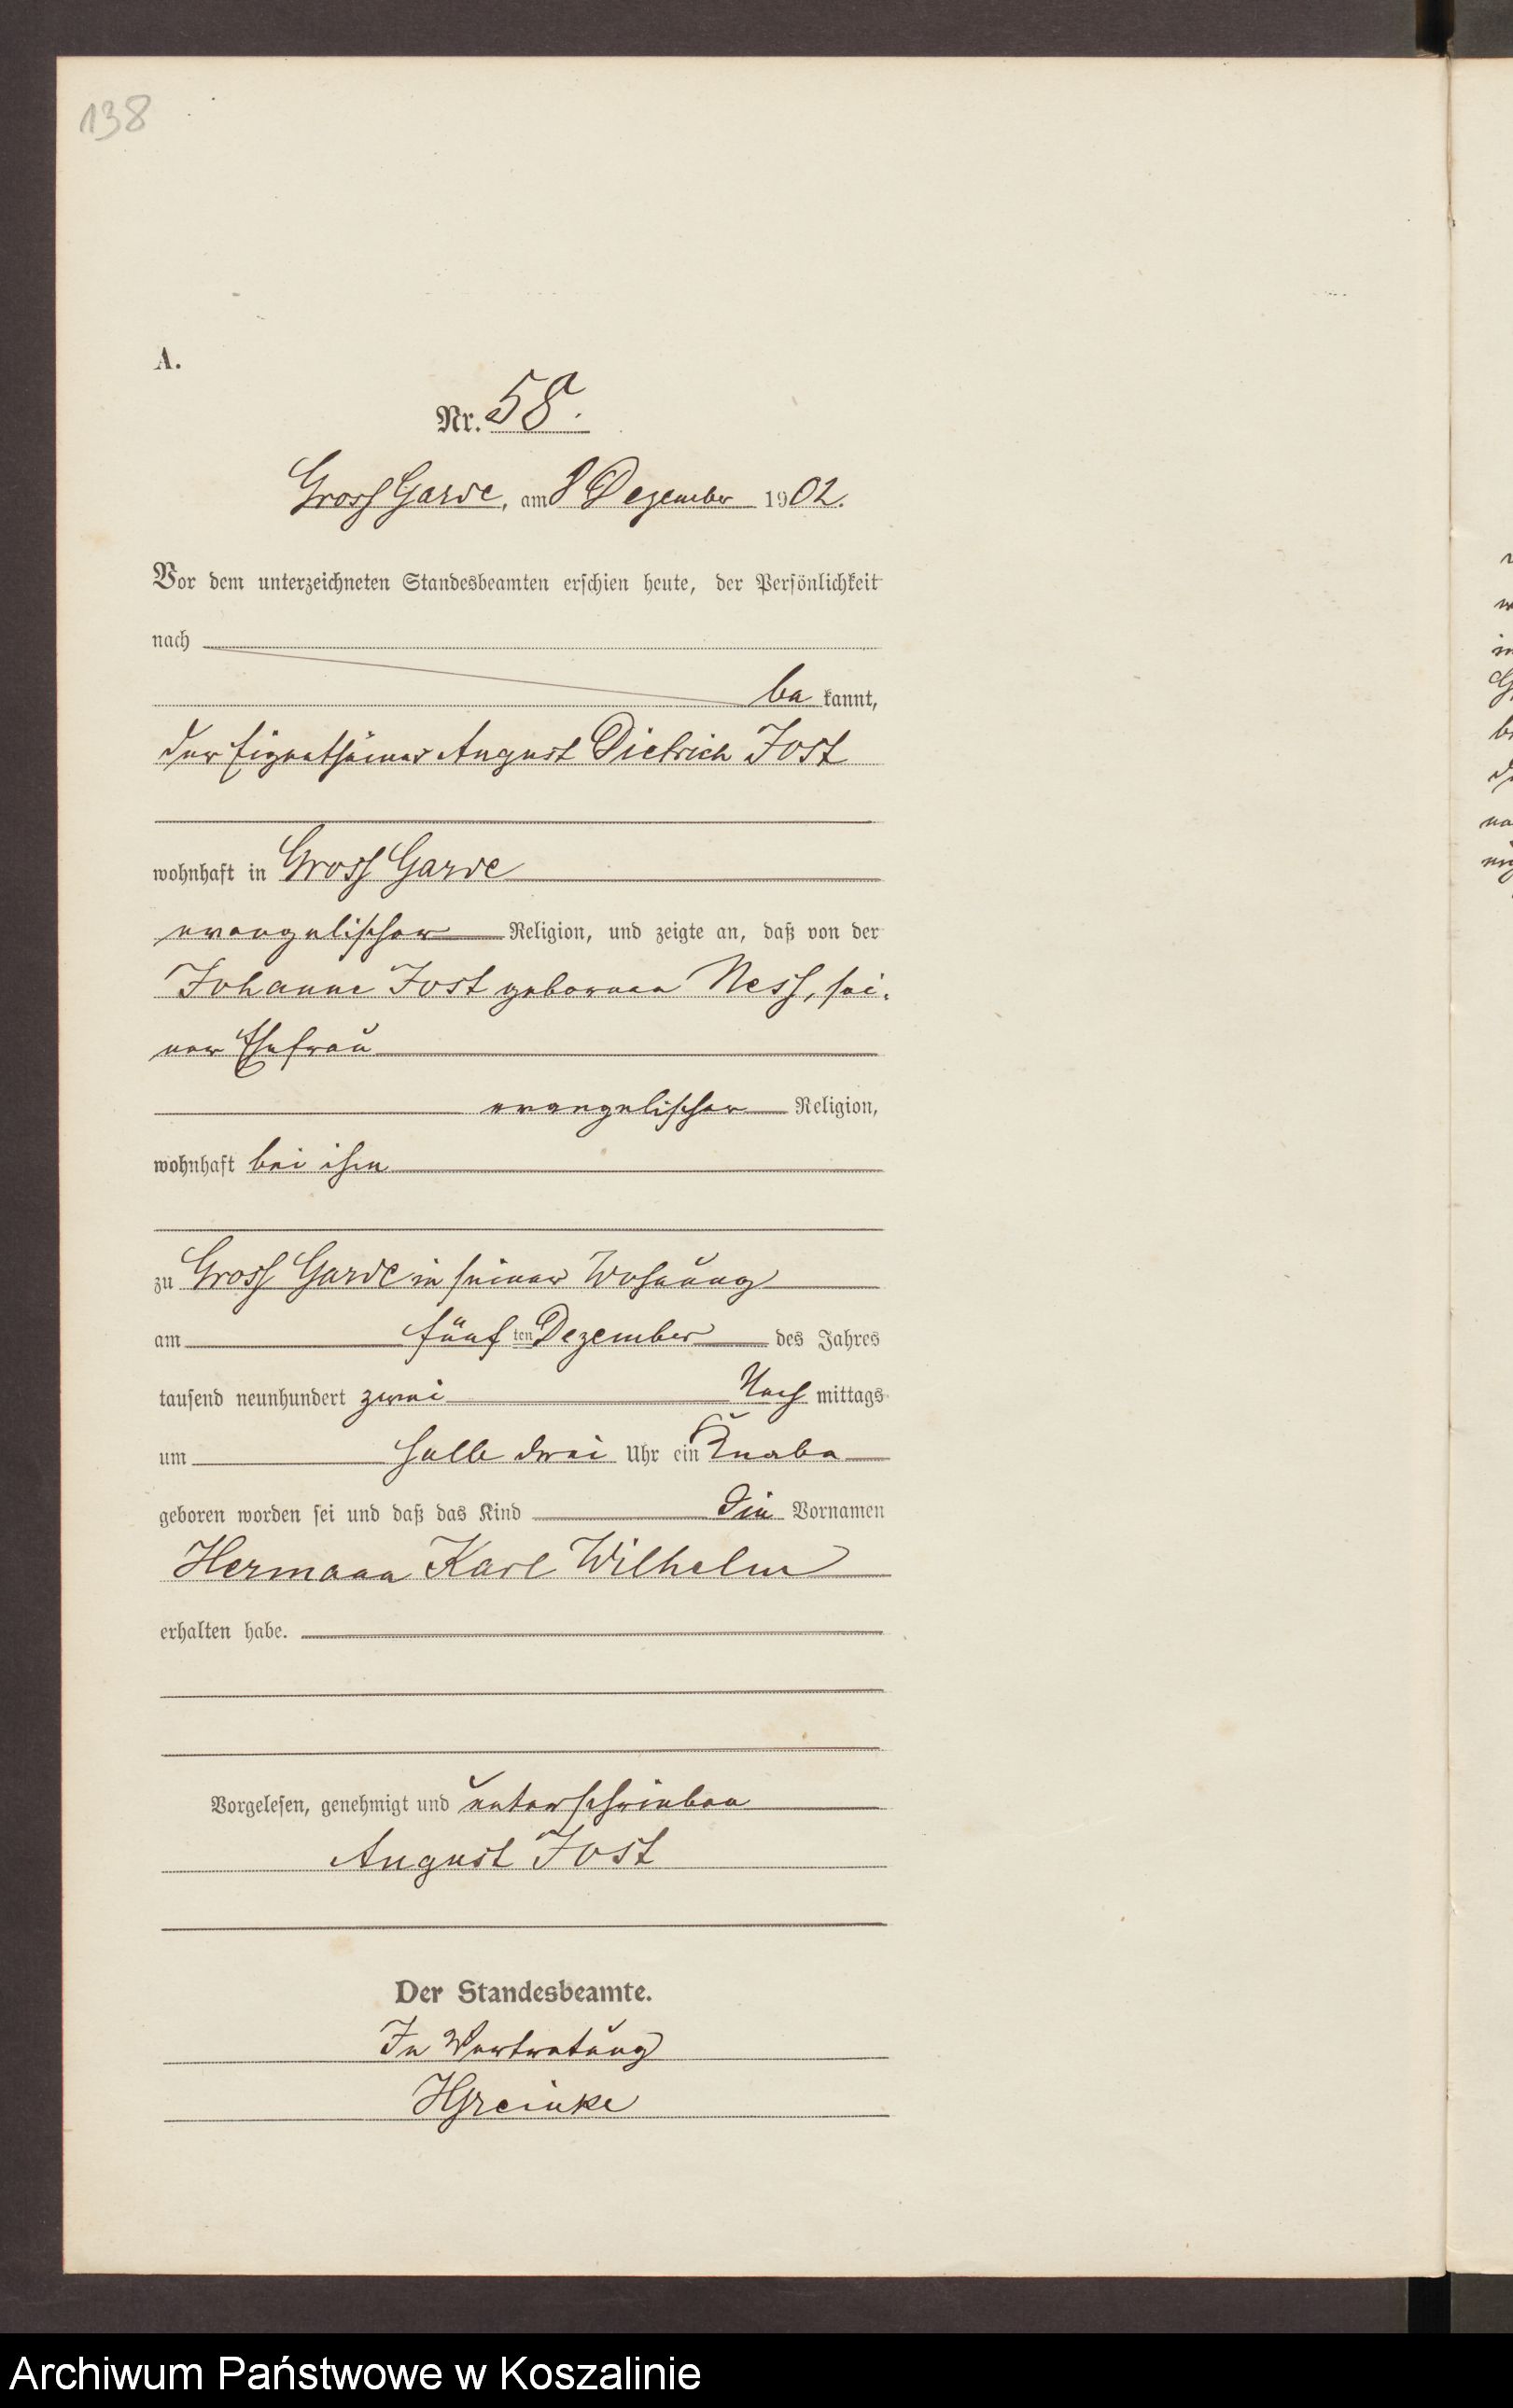 138
A.
Nr. 58.
Gross Garde, am 8 Dezember 1902.
Vor dem unterzeichneten Standesbeamten erschien heute, der Persönlichkeit
nach
be kannt,
der Eigenthümer August Dietrich Jost
wohnhaft in Gross Garde
evangelischer Religion, und zeigte an, daß von der
Johanne Jost geborenen Ness, sei-
ner Ehefrau
evangelischer Religion,
wohnhaft bei ihm
zu Gross Garde in seiner Wohnung
am fünf ten Dezember des Jahres
tausend neunhundert zwei Nach mittags
um halb drei Uhr ein Knabe
geboren worden sei und daß das Kind die Vornamen
Hermann Karl Wilhelm
erhalten habe.
Vorgelesen, genehmigt und unterschrieben
August Jost
Der Standesbeamte.
In Vertretung
Archiwum Państwowe w Koszalinie